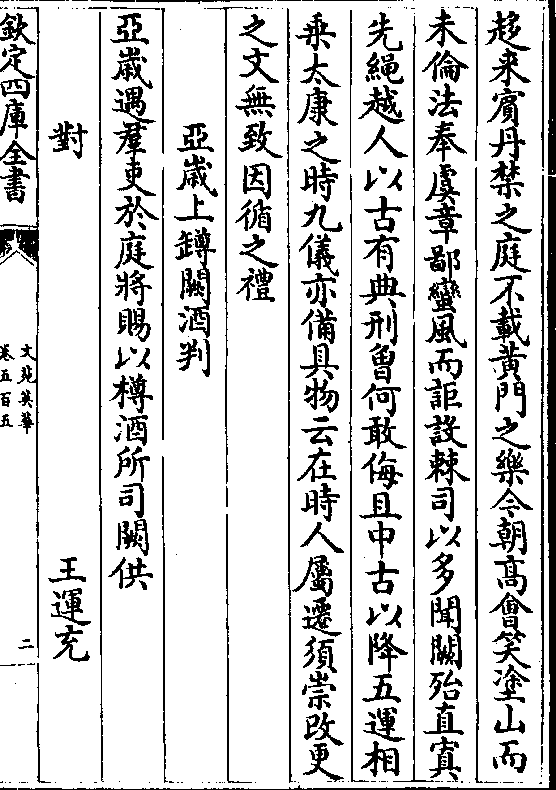 趍来賓丹禁之庭不載黄門之樂今朝髙㑹笑塗山而
未倫法奉虞章鄙蠻風而詎設棘司以多聞闕殆直寘
先繩越人以古有典刑曾何敢侮且中古以降五運相
乗太康之時九儀亦備具物云在時人屬遷須崇改更
之文無致因循之禮
亞嵗上罇闕酒判
亞嵗遇羣吏於庭將賜以樽酒所司闕供
對 王運充
欽定四庫全書
文苑英華
卷五百五
二